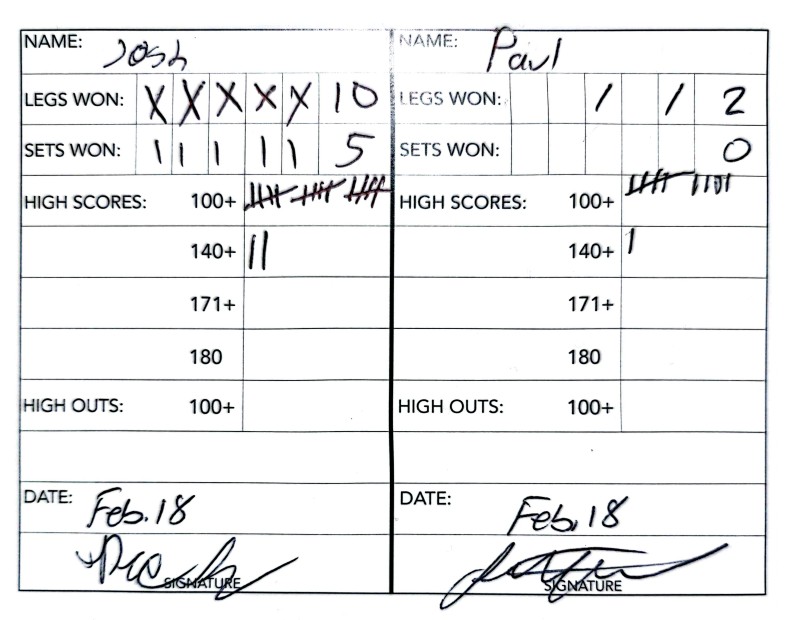 NAME: Josh
LEGS WON: X X X X X 10
SETS WON: 1 1 1 1 1 5
HIGH SCORES: 100+ 卌 卌 卌
140+ ||
171+
180
HIGH OUTS: 100+
DATE: Feb. 18
SIGNATURE
NAME: Paul
LEGS WON: / / 2
SETS WON: 0
HIGH SCORES: 100+ 卌 ||||
140+ |
171+
180
HIGH OUTS: 100+
DATE: Feb. 18
SIGNATURE